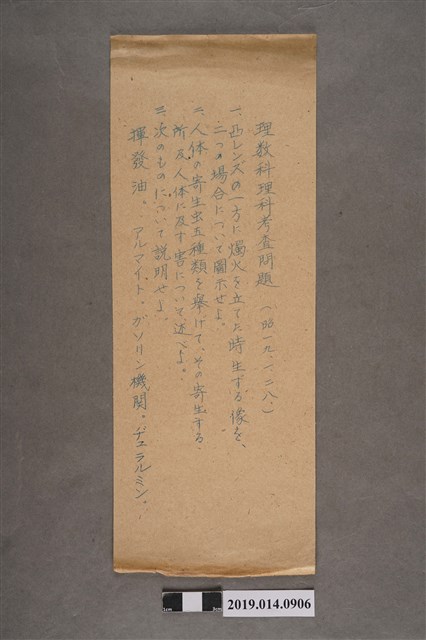 理数科理科考査問題 (昭一九、一二八、)
一、凸レンズの一方に燭火を立てた時生ずる像を、
二つの場合について圖示せよ。
二、人体の寄生虫五種類を擧げて、その寄生する
所及人体に及す害について述べよ。
三、次のものについて説明せよ。
揮發油。アルマイト。ガソリン機関。ヂュラルミン。
1cm
5cm
2019.014.0906